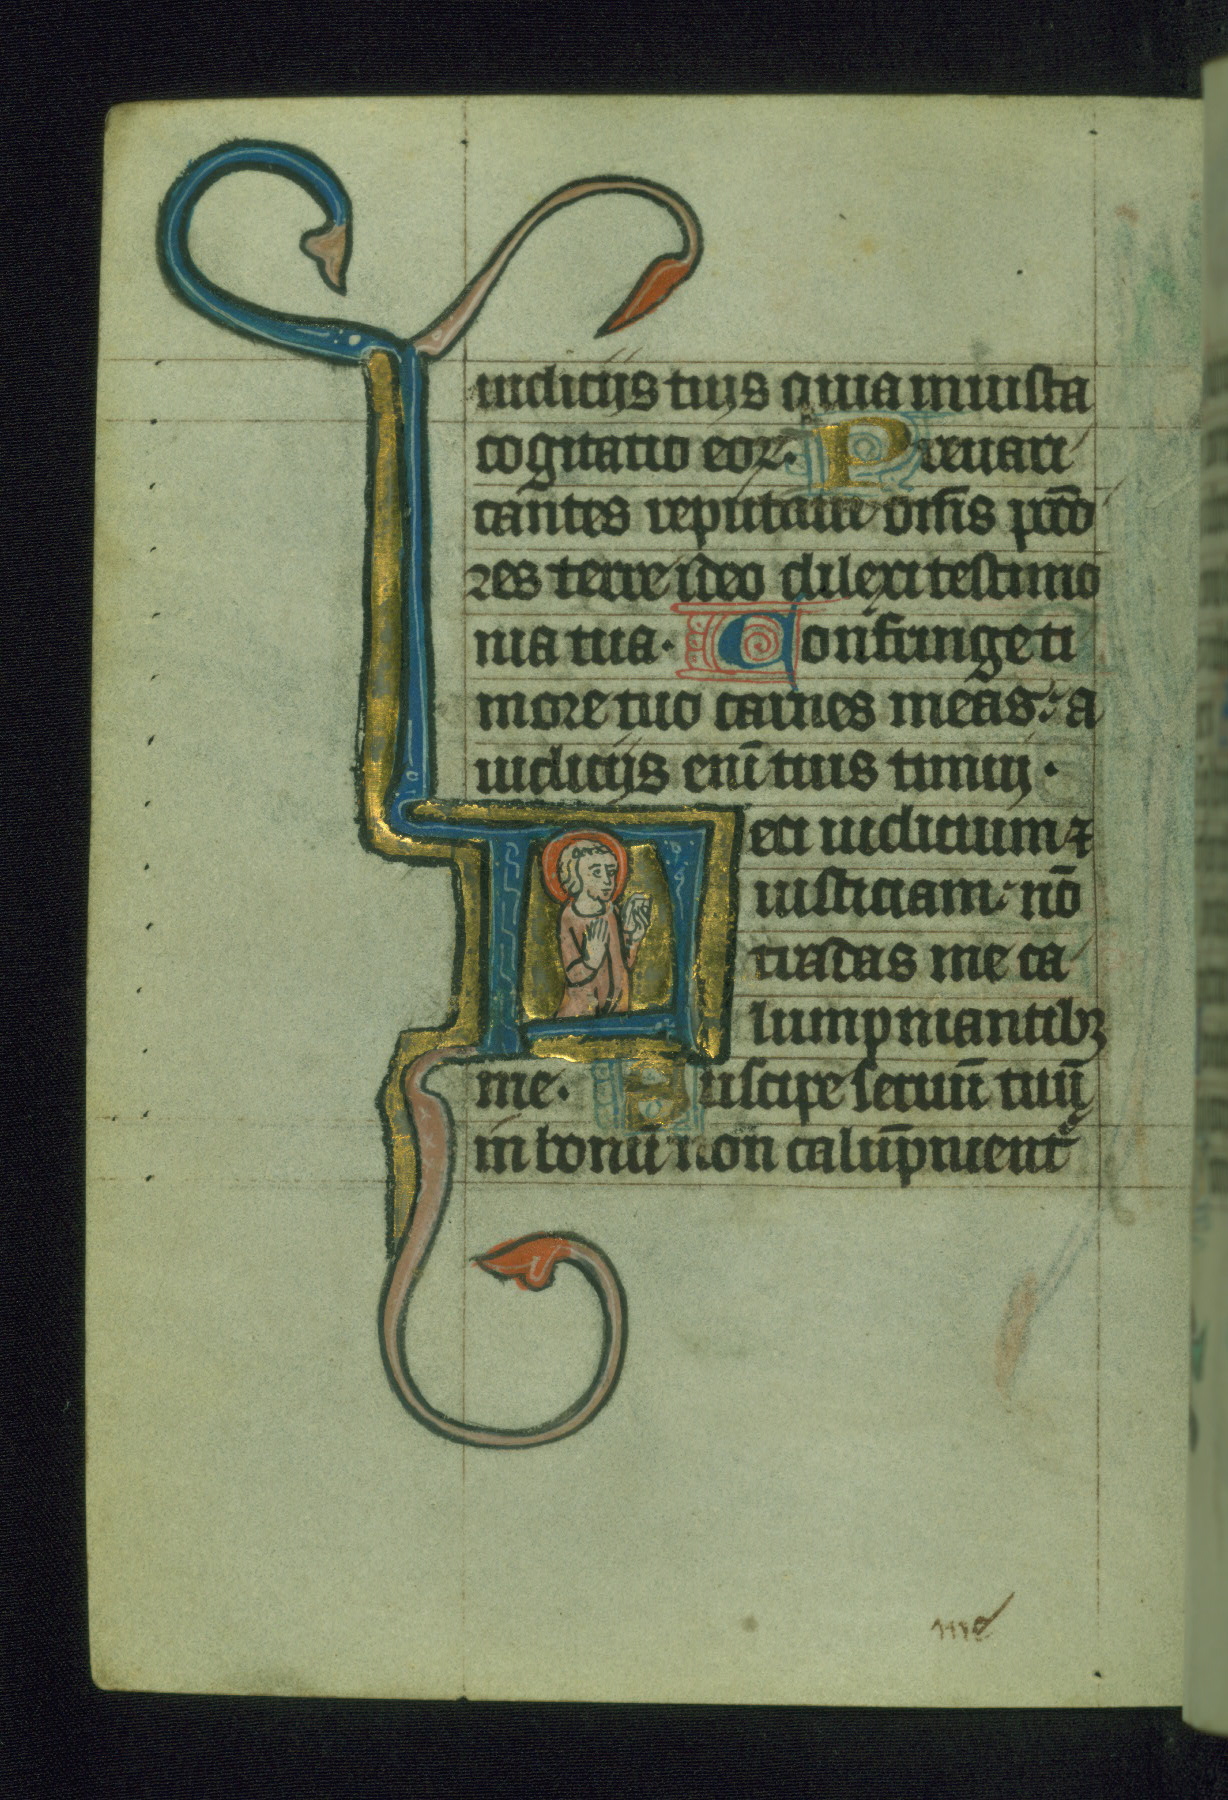 iudiciis tuis quia iniusta
cogitatio eoꝝ. Preuari
cantes reputaui om̄s pctō
res terre ideo dilexi testimo
nia tua. Confringe ti
more tuo carnes meas: a
iudiciis eni̅ tuis timui.
eci iudicium ⁊
iusticiam: no̅
tradas me ca
lumpniantibꝫ
me. Suscipe seruu̅ tuu̅
in bonu̅ non calu̅pnient